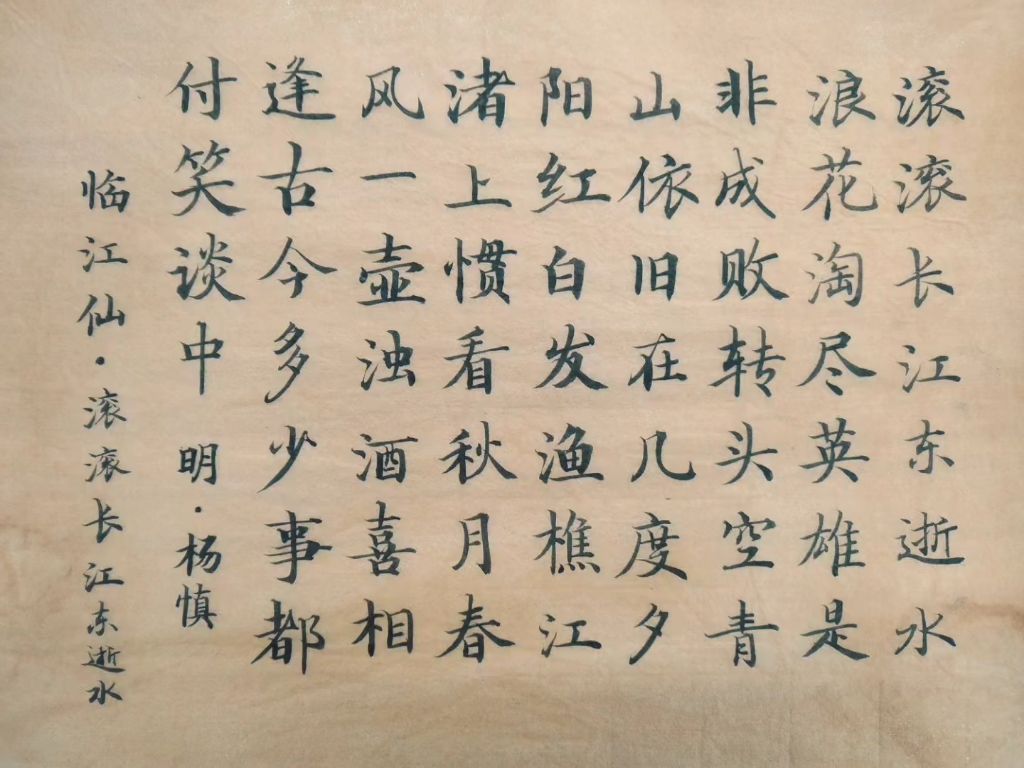 滚滚长江东逝水
浪花淘尽英雄是
非成败转头空青
山依旧在几度夕
阳红白发渔樵江
渚上惯看秋月春
风一壶浊酒喜相
逢古今多少事都
付笑谈中 明·杨慎
临江仙·滚滚长江东逝水